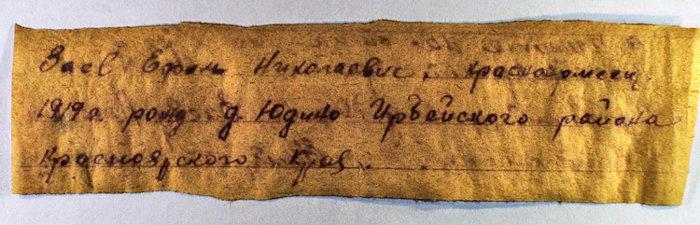 Заев Ефам Николаевич, красноармеец.
1919г. рожд. д. Юдино Ирбейского района
Красноярского Края.